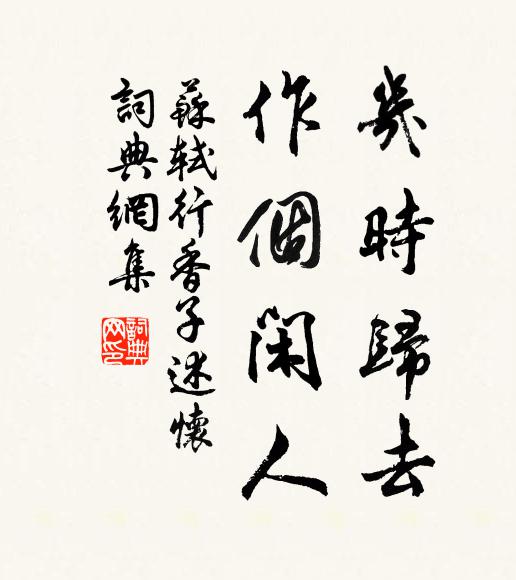 幾時歸去
作個閑人
蘇軾行香子述懷
詞典網集
詞典网印